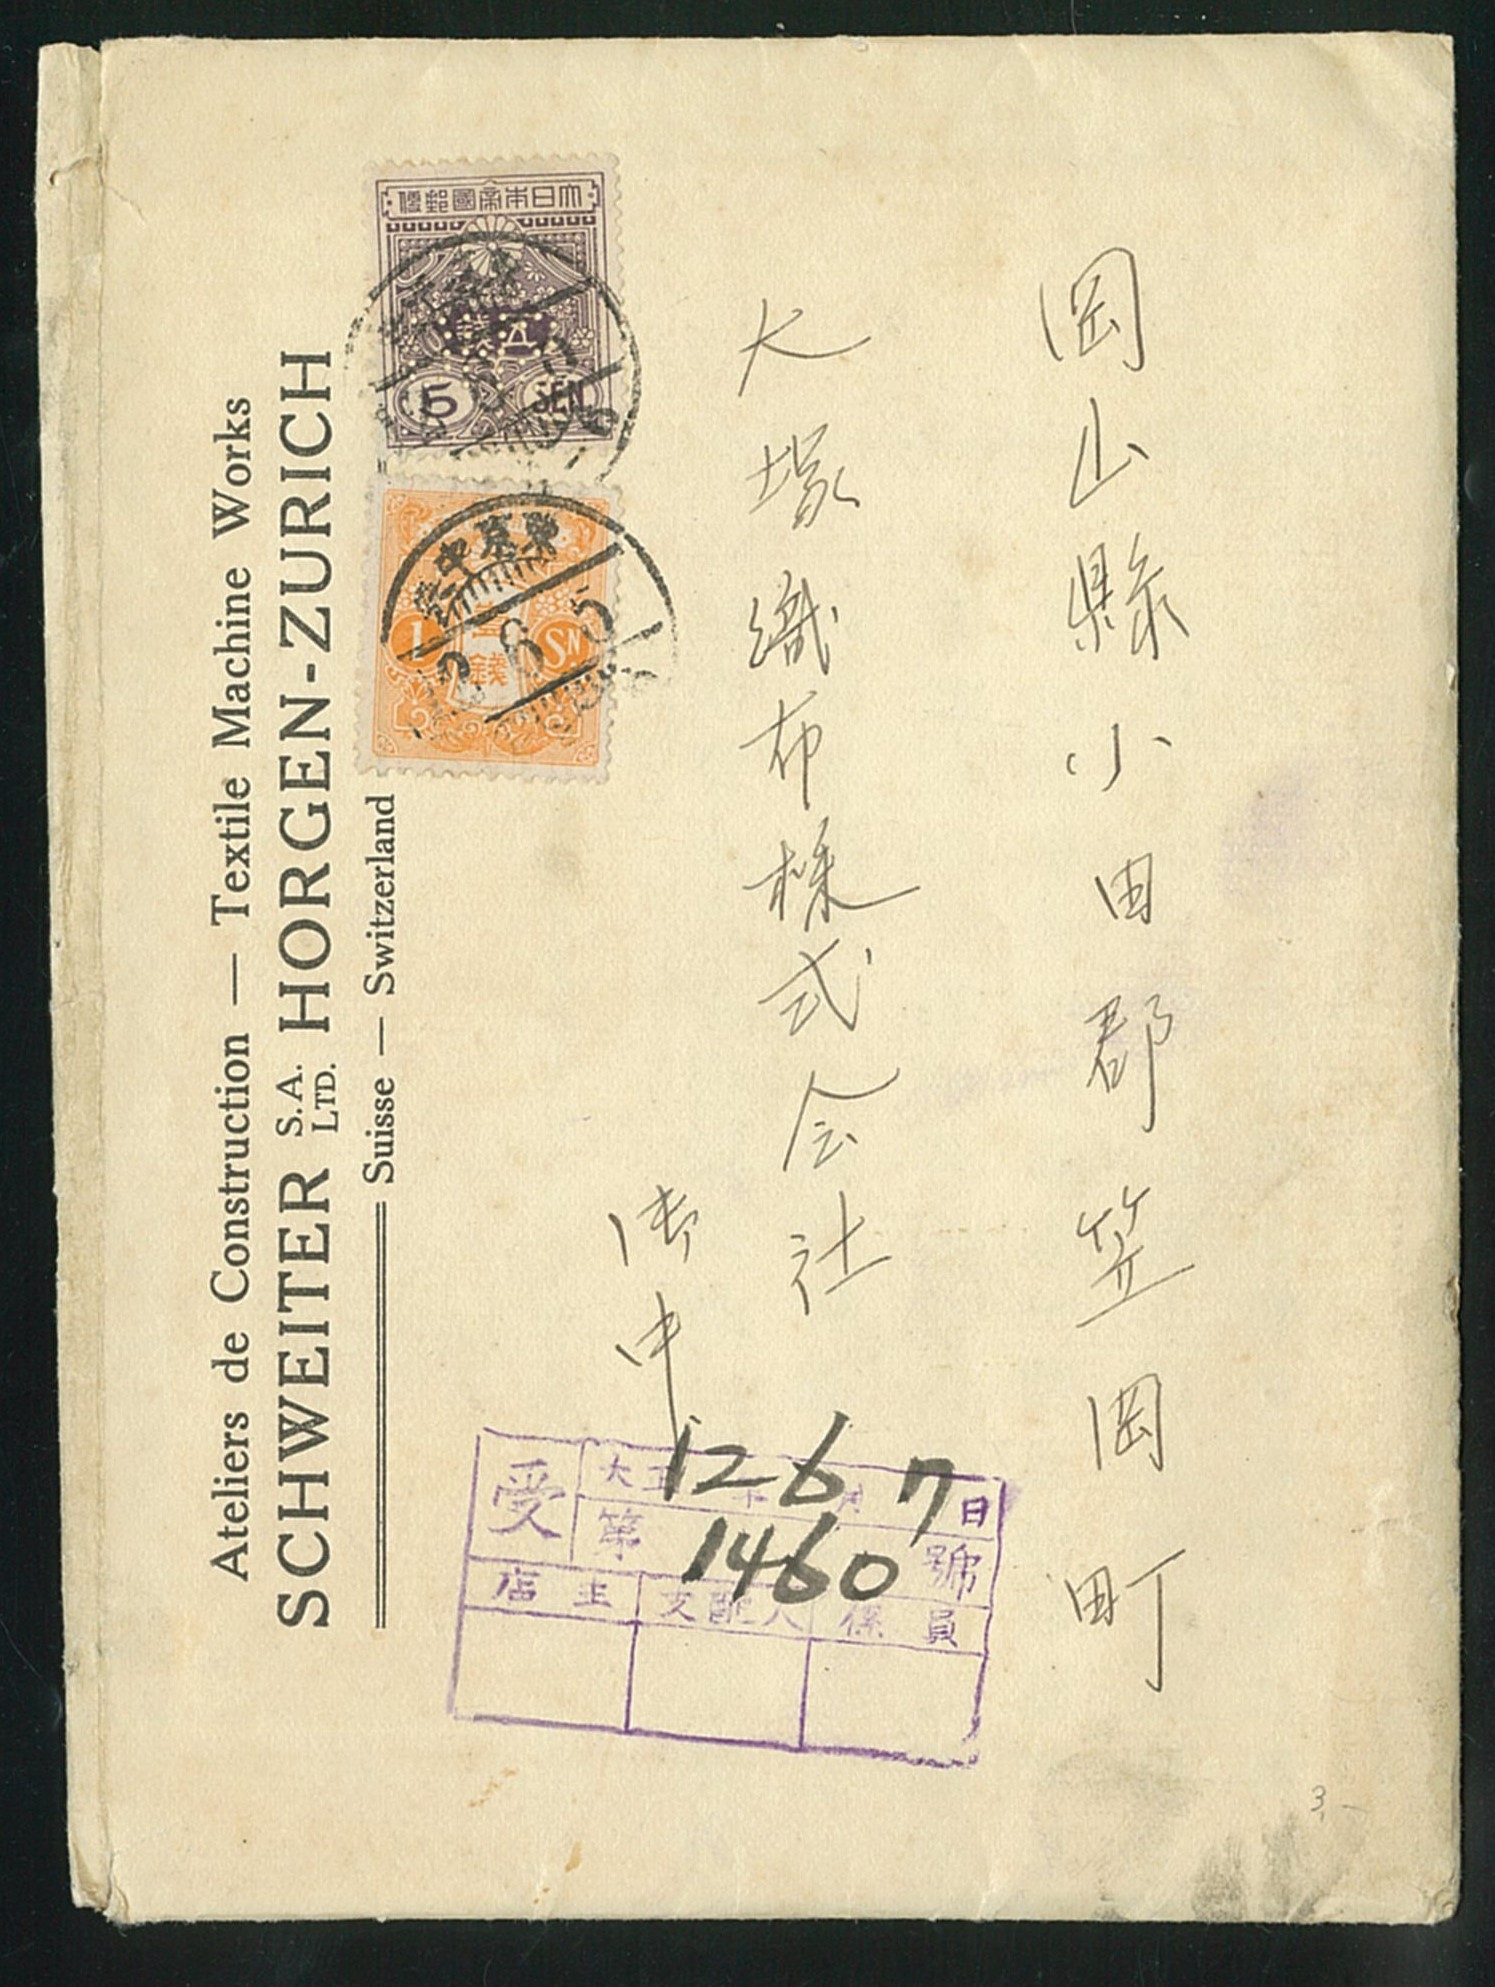 Ateliers de Construction — Textile Machine Works
SCHWEITER S.A. LTD. HORGEN-ZURICH
Suisse — Switzerland
大日本帝國郵便
五錢
5 SEN
1 錢 SN
6 5
岡山縣小田郡笠岡町
大塚織布株式会社
御中
受
大正 12 年 6 月 7 日
第 1460 號
店主 支配人 係員
3,-